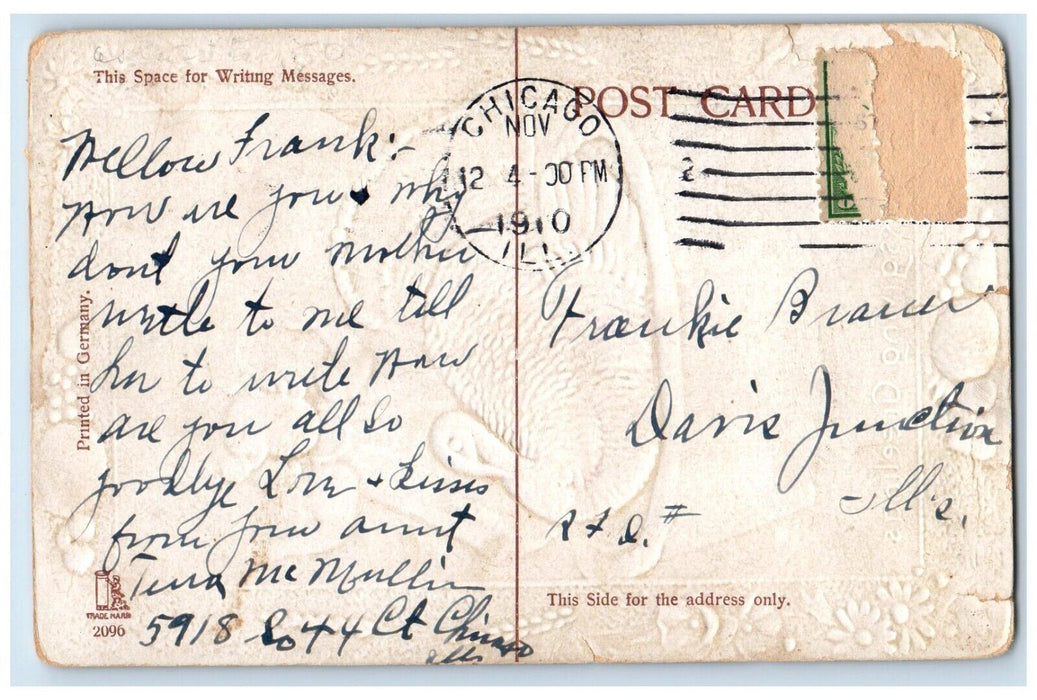 This Space for Writing Messages.
POST CARD
CHICAGO
NOV
12 4-00 PM
1910
ILL.
2
Hellow Frank:-
How are you why
dont your mother
write to me tell
her to write How
are you all so
goodbye Love + Kisses
from your aunt
Mc Mullin
5918 So 44 Ct Chicago
Ills
Frankie
Davis Junction
Ills.
R F D. #
Printed in Germany.
TRADE MARK
2096
This Side for the address only.